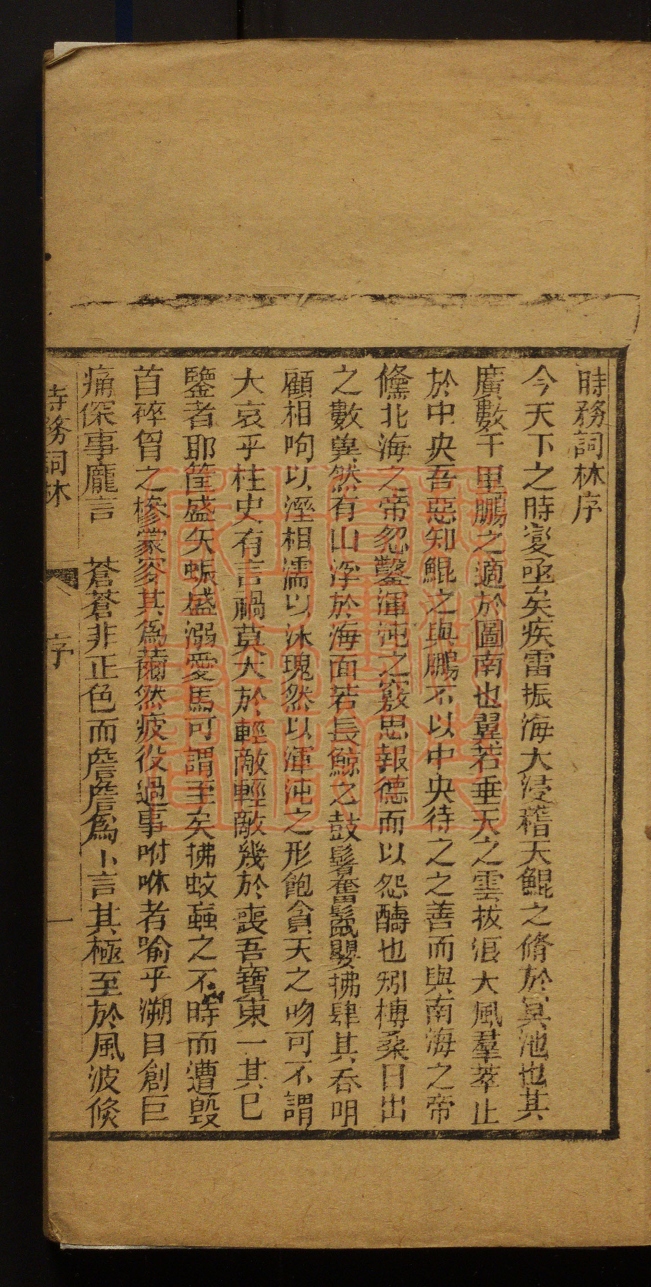 時務詞林序
今天下之時變亟矣疾雷振海大浸稽天鯤之脩於冥池也其
廣數千里鵬之適於圖南也翼若垂天之雲拔浪大風羣萃止
於中央吾惡知鯤之與鵬不以中央待之之善而與南海之帝
儵北海之帝忽鑿渾沌之竅思報德而以怨醻也矧榑桑日出
之數奧然有山浮於海面若長鯨之鼓鬐奮鬣嬰拂肆其吞
顧相呴以溼相濡以沫瑰然以渾沌之形飽貪天之吻可不謂
大哀乎柱史有言禍莫大於輕敵輕敵幾於喪吾寶東一其已
鑒者耶筐盛矢蜄盛溺愛馬可謂至矣拂蚊蝱之不時而遭毀
首碎胷之慘蒙容其為薾然疲役過事咐咻者喻乎溯目創巨
痛深事龐言 蒼蒼非正色而詹詹為小言其極至於風波倏
時務詞林 序 一